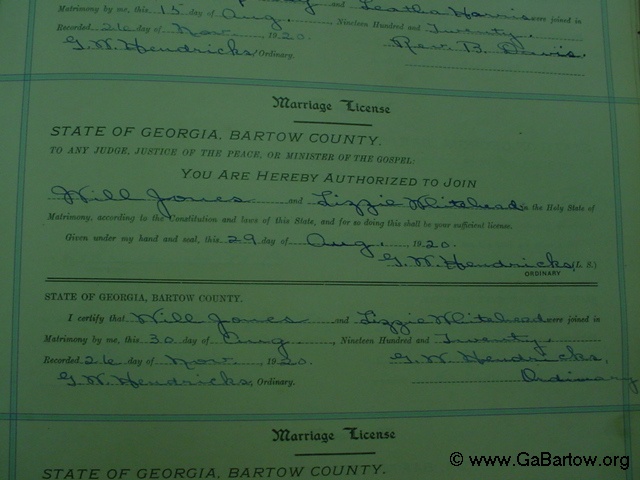 Leatha Harris were joined in
Matrimony by me, this 15 day of Aug., Nineteen Hundred and Twenty.
Recorded 26 day of Nov. 1920.
G. W. Hendricks, Ordinary. Rev. B. Davis.
Marriage License
STATE OF GEORGIA, BARTOW COUNTY.
TO ANY JUDGE, JUSTICE OF THE PEACE, OR MINISTER OF THE GOSPEL:
YOU ARE HEREBY AUTHORIZED TO JOIN
Will Jones and Lizzie Whitehead in the Holy State of
Matrimony, according to the Constitution and laws of this State, and for so doing this shall be your sufficient license.
Given under my hand and seal, this 29 day of Aug. 1920.
G. W. Hendricks (L. S.)
ORDINARY
STATE OF GEORGIA, BARTOW COUNTY.
I certify that Will Jones and Lizzie Whitehead were joined in
Matrimony by me, this 30 day of Aug., Nineteen Hundred and Twenty.
Recorded 26 day of Nov. 1920. G. W. Hendricks,
G. W. Hendricks, Ordinary. Ordinary
Marriage License
STATE OF GEORGIA, BARTOW COUNTY.
© www.GaBartow.org